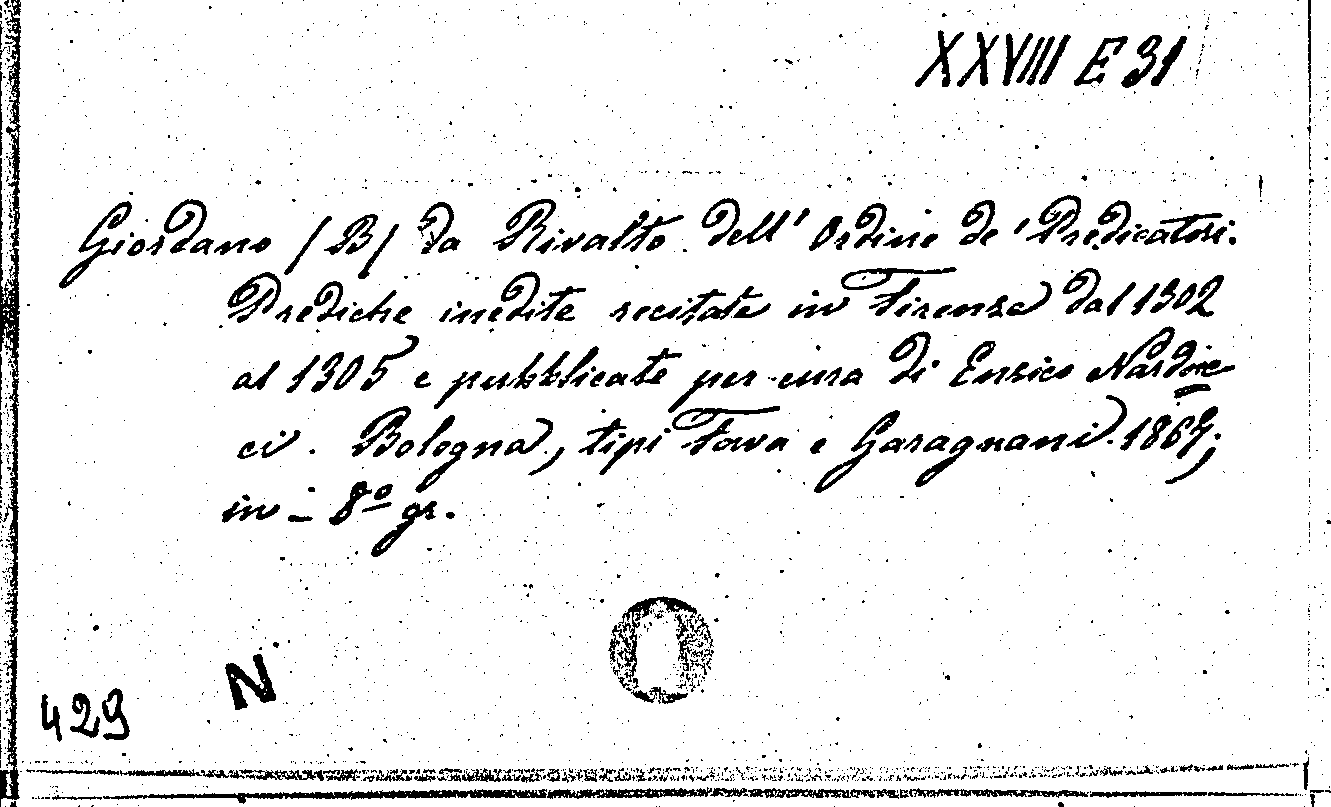 XXVIII E 31
Giordano (B) da Rivalto dell' Ordine de' Predicatori.
Prediche inedite recitate in Firenze dal 1302
al 1305 e pubblicate per cura di Enrico Narduc
ci. Bologna, tipi Fava e Garagnani. 1867;
in - 8º gr.
N
429